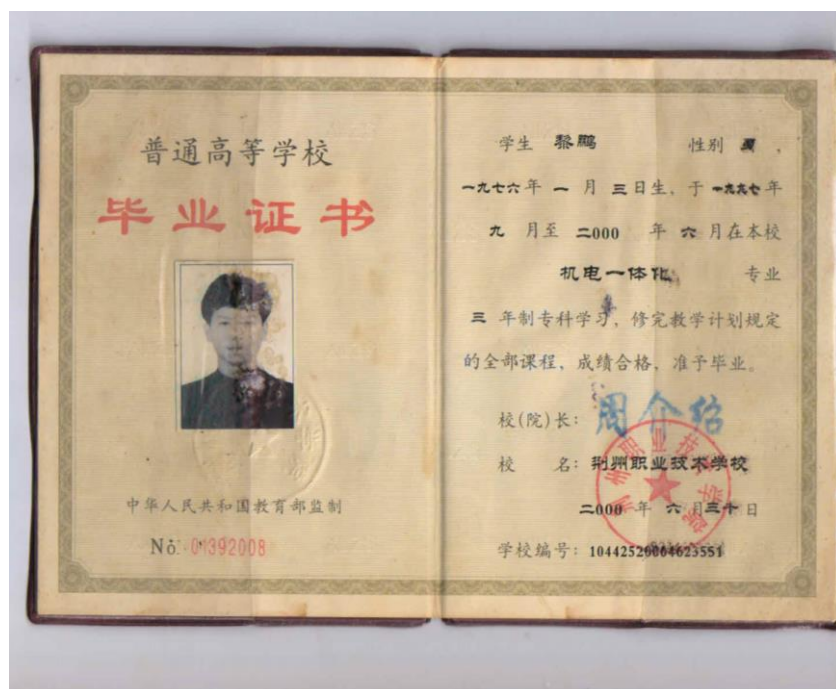 普通高等学校
毕业证书
中华人民共和国教育部监制
No. 01392008
学生 黎鹏 性别 男 ,
一九七六年 一 月 三日生, 于 一九九七年
九 月至 二000 年 六 月在本校
机电一体化 专业
三 年制专科学习, 修完教学计划规定
的全部课程, 成绩合格, 准予毕业。
校(院)长: 周介绍
校 名: 荆州职业技术学校
二000 年 六 月三十日
学校编号: 10442520004623551